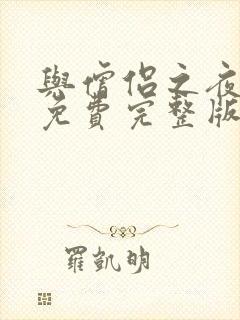 與僧侶之夜
免費完整版
羅凱明